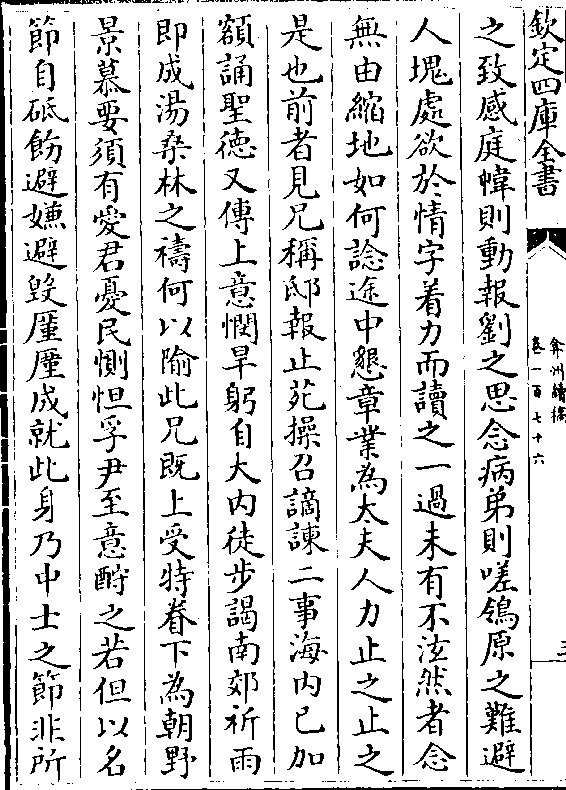 欽定四庫全書
弇州續稿
卷一百七十六
三
之致感庭幃則動報劉之思念病弟則嗟鴒原之難避
人塊處欲於情字着力而讀之一過未有不泫然者念
無由縮地如何諗途中懇章業為太夫人力止之止之
是也前者見兄稱邸報止苑操召謫諫二事海内已加
額誦聖德又傳上意憫旱躬自大内徒步謁南郊祈雨
即成湯桒林之禱何以隃此兄既上受特眷下為朝野
景慕要須有愛君憂民惻怛孚尹至意酧之若但以名
節自砥飭避嫌避毀厪厪成就此身乃中士之節非所